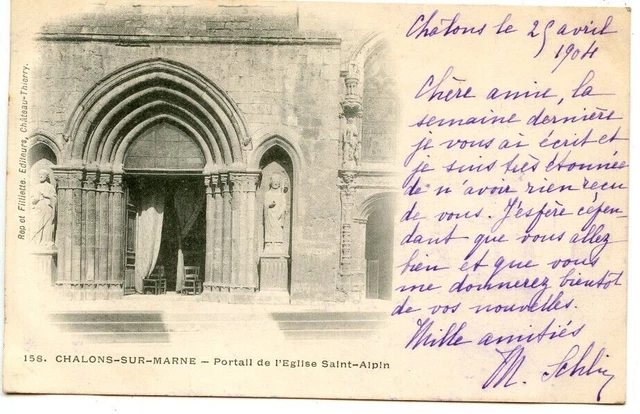 Châlons le 25 avril
1904
Chère amie, la
semaine dernière
je vous ai écrit et
je suis très étonnée
de n'avoir rien reçu
de vous. J'espère cépen
dant que vous allez
bien et que vous
me donnerez bientot
de vos nouvelles.
Mille amitiés
M.
Rep et Filliette. Editeurs, Château-Thierry.
158. CHALONS-SUR-MARNE — Portail de l'Eglise Saint-Alpin